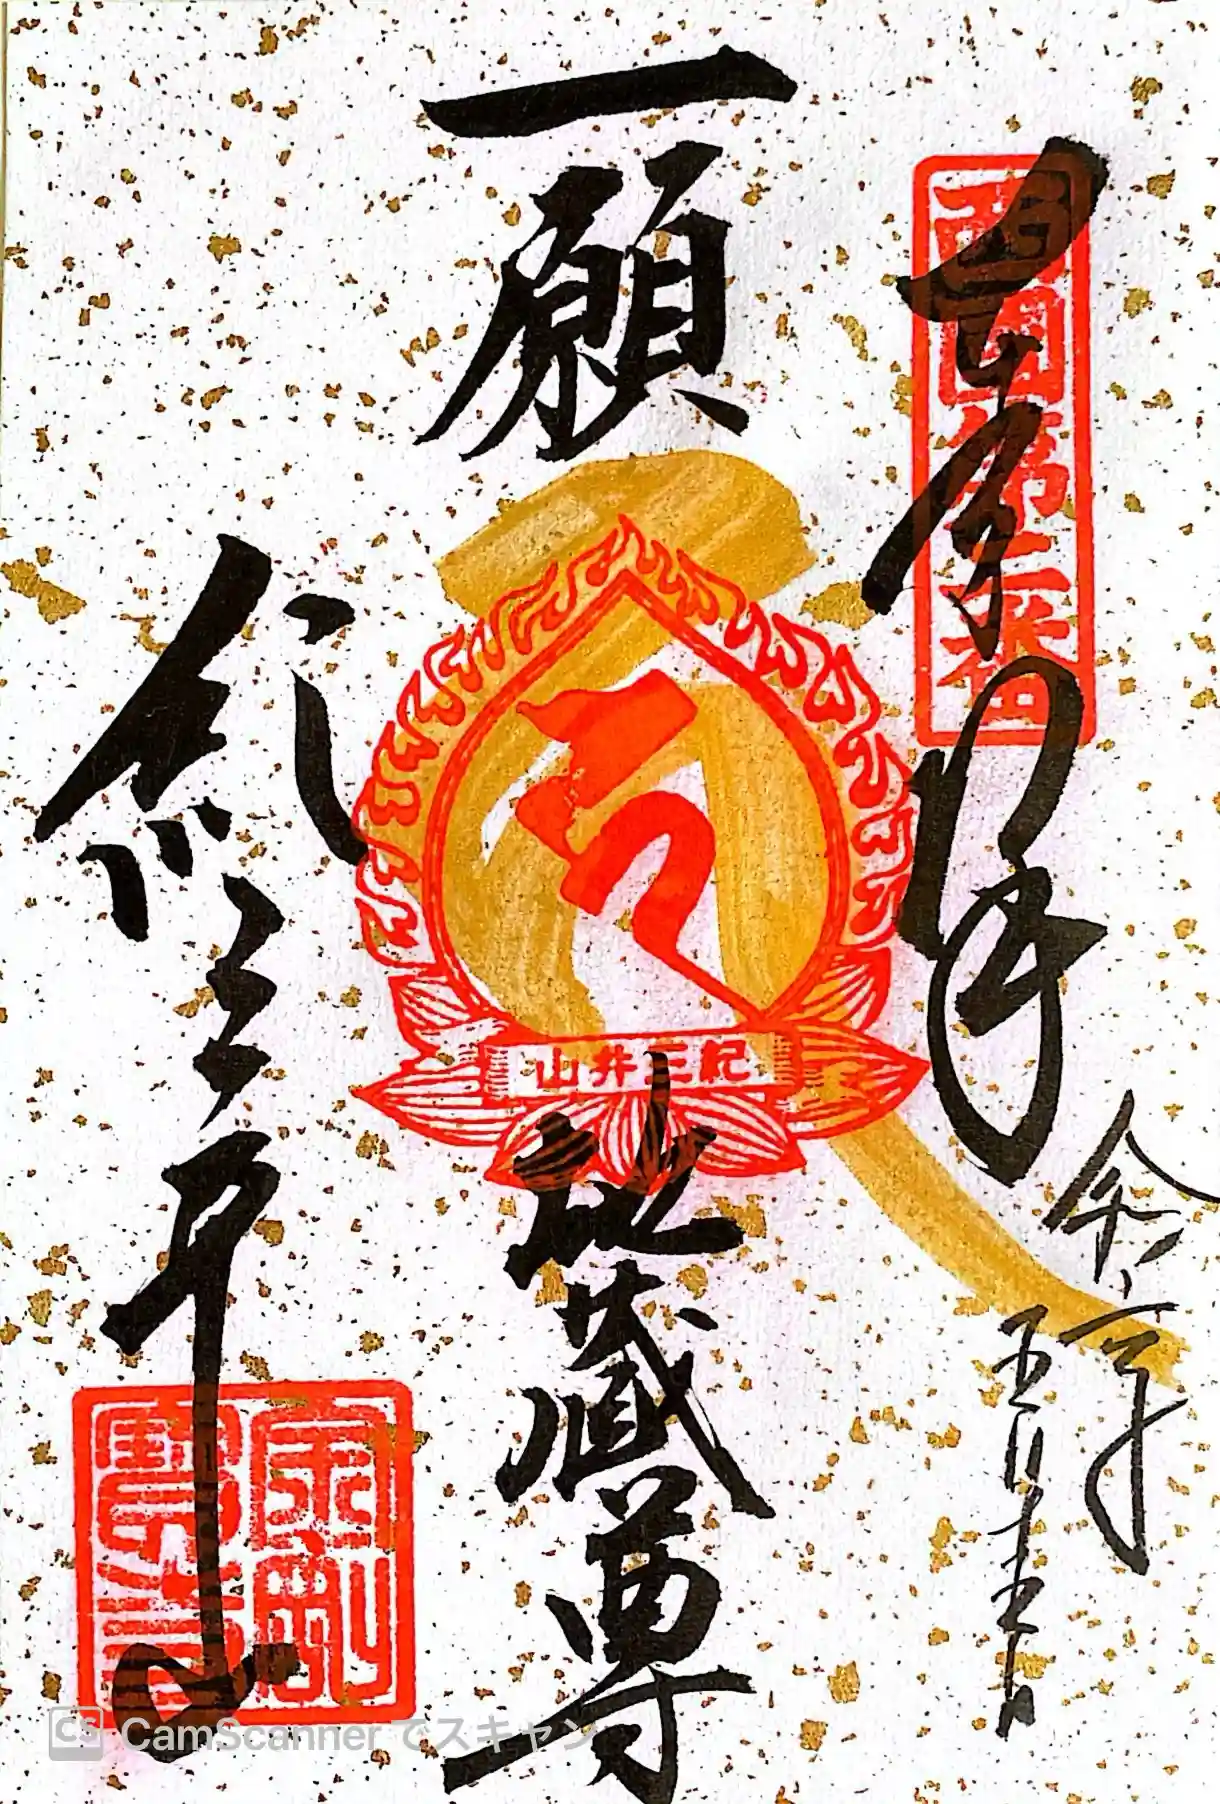 西国第二番
奉拝
令和六年
五月十五日
一願
地蔵尊
紀三井山
紀三井寺
金剛
寶寺
CamScanner でスキャン